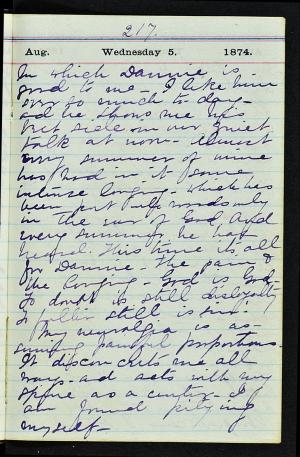 217.
Aug. Wednesday 5. 1874.
In which Dannie is
good to me - I like him
ever so much to day -
ad he shows me his
best side in our quiet
talk at noon - Almost
every summer of mine
has had in it some
intense longing - which has
been put into words only
in the ear of God. And
every summer he has
heard. This time it's all
for Dannie. The pain &
the longing - God is God -
To doubt is still disloyalty
To falter still is sin!
My neuralgia is as-
suming painful proportions.
It disconcerts me all
ways - ad acts with my
spine as a - I
am found pitying
myself -